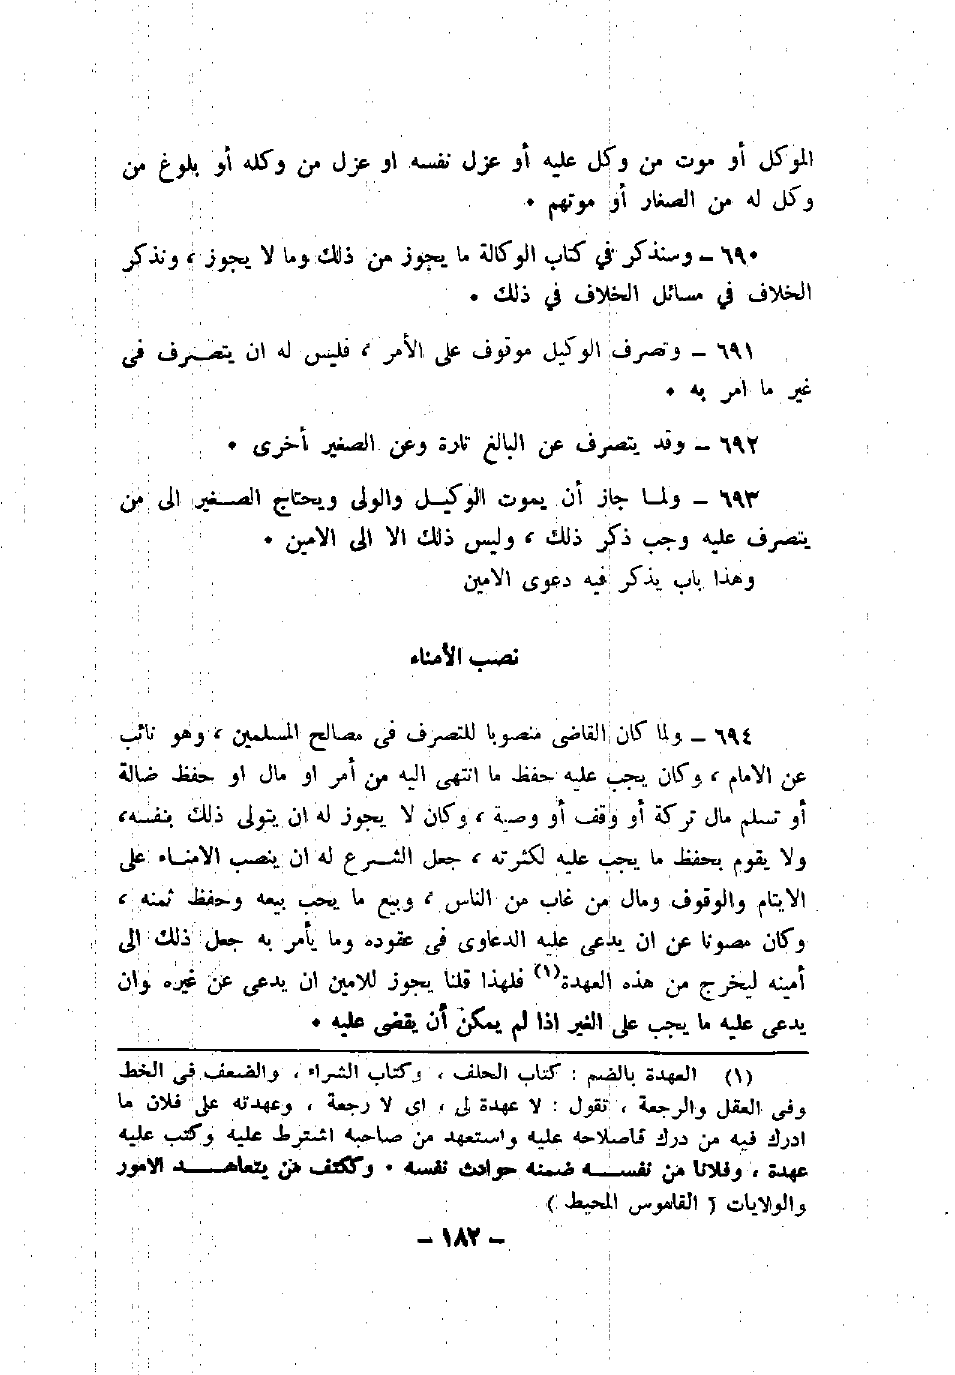 الموكل أو موت من وكل عليه أو عزل نفسه او عزل من وكله أو بلوغ من
وكل له من الصغار أو موتهم ٠
٦٩٠ – وسنذكر في كتاب الوكالة ما يجوز من ذلك وما لا يجوز ، ونذكر
الخلاف في مسائل الخلاف في ذلك ٠
٦٩١ – وتصرف الوكيل موقوف على الأمر ، فليس له ان يتصرف فى
غير ما امر به ٠
٦٩٢ – وقد يتصرف عن البالغ تارة وعن الصغير أخرى ٠
٦٩٣ – ولما جاز أن يموت الوكيل والولى ويحتاج الصغير الى من
يتصرف عليه وجب ذكر ذلك ، وليس ذلك الا الى الامين ٠
وهذا باب يذكر فيه دعوى الامين
نصب الأمناء
٦٩٤ – ولما كان القاضى منصوبا للتصرف فى مصالح المسلمين ، وهو نائب
عن الامام ، وكان يجب عليه حفظ ما انتهى اليه من أمر او مال او حفظ ضالة
أو تسلم مال تركة أو وقف أو وصية ، وكان لا يجوز له ان يتولى ذلك بنفسه،
ولا يقوم بحفظ ما يجب عليه لكثرته ، جعل الشرع له ان ينصب الامناء على
الايتام والوقوف ومال من غاب من الناس ، وبيع ما يحب بيعه وحفظ ثمنه ،
وكان مصونا عن ان يدعى عليه الدعاوى فى عقوده وما يأمر به جعل ذلك الى
أمينه ليخرج من هذه العهدة(١) فلهذا قلنا يجوز للامين ان يدعى عن غيره وان
يدعى عليه ما يجب على الغير اذا لم يمكن أن يقضى عليه ٠
(١) العهدة بالضم : كتاب الحلف ، وكتاب الشراء ، والضعف فى الخط
وفى العقل والرجعة ، تقول : لا عهدة لى ، اى لا رجعة ، وعهدته على فلان ما
ادرك فيه من درك فاصلاحه عليه واستعهد من صاحبه اشترط عليه وكتب عليه
عهدة ، وفلانا من نفسه ضمنه حوادث نفسه ٠ وككتف من يتعاهد الامور
والولايات ( القاموس المحيط )
– ١٨٢ –